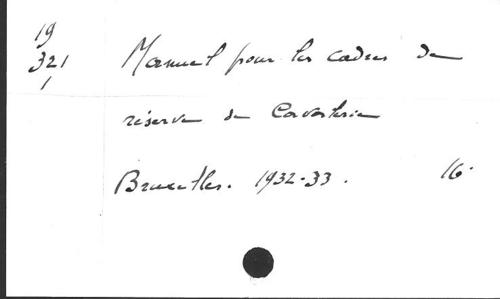 19
321
1
Manuel pour les cadres de
réserve de Cavalerie
Bruxelles. 1932-33.
16°